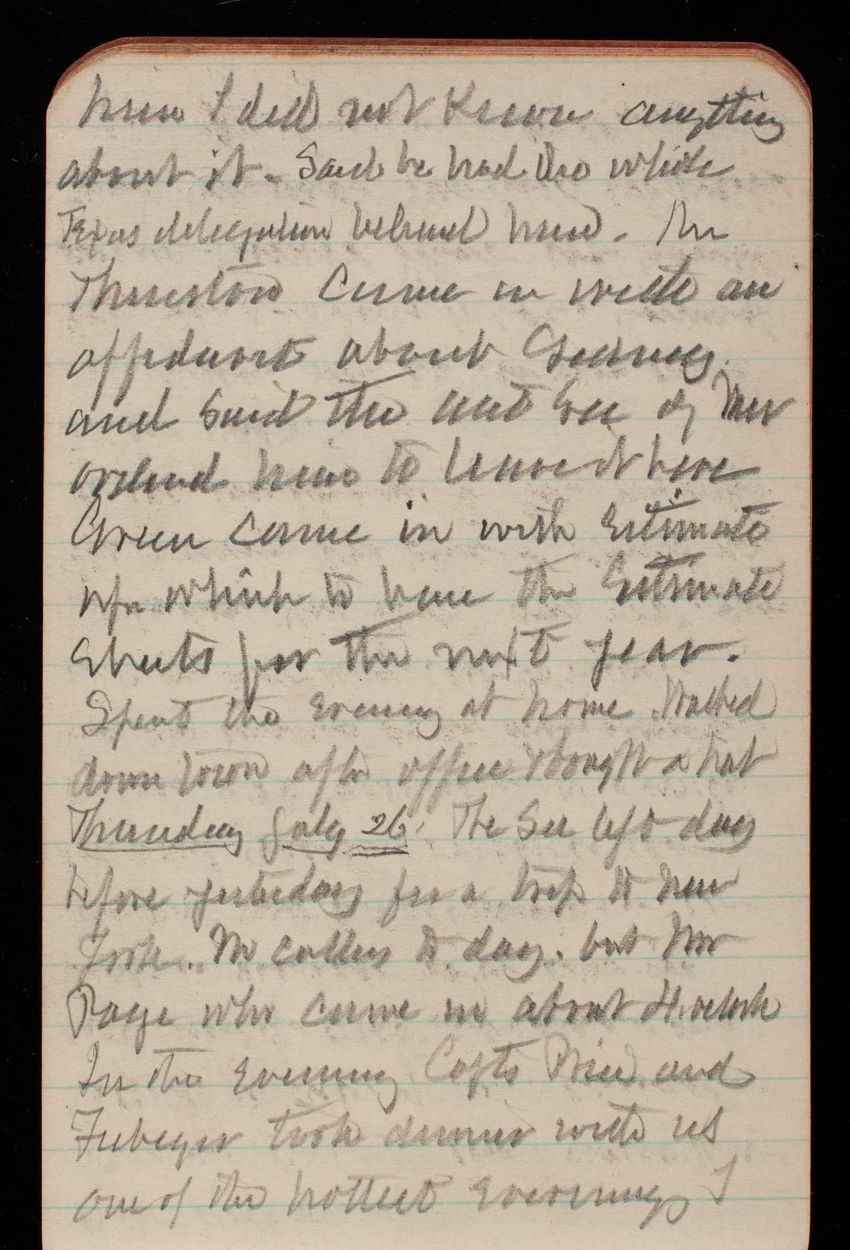 him I did not know anything
about it. Said he had the whole
Texas delegation behind him. Mr
Thurston came in with an
affidavit about
and said the act Sec of War
ordered him to leave it here
Green came in with Estimate
which to have the Estimate
Sheets for the next year.
Spent the evening at home. Walked
down town after office & bought a hat
Thursday July 26. The Sec left day
before yesterday for a trip to New
York. No callers to day. but Mr
Page who came in about 4. oclock
In the evening Capts Price and
Febeger took dinner with us
one of the hottest evenings I